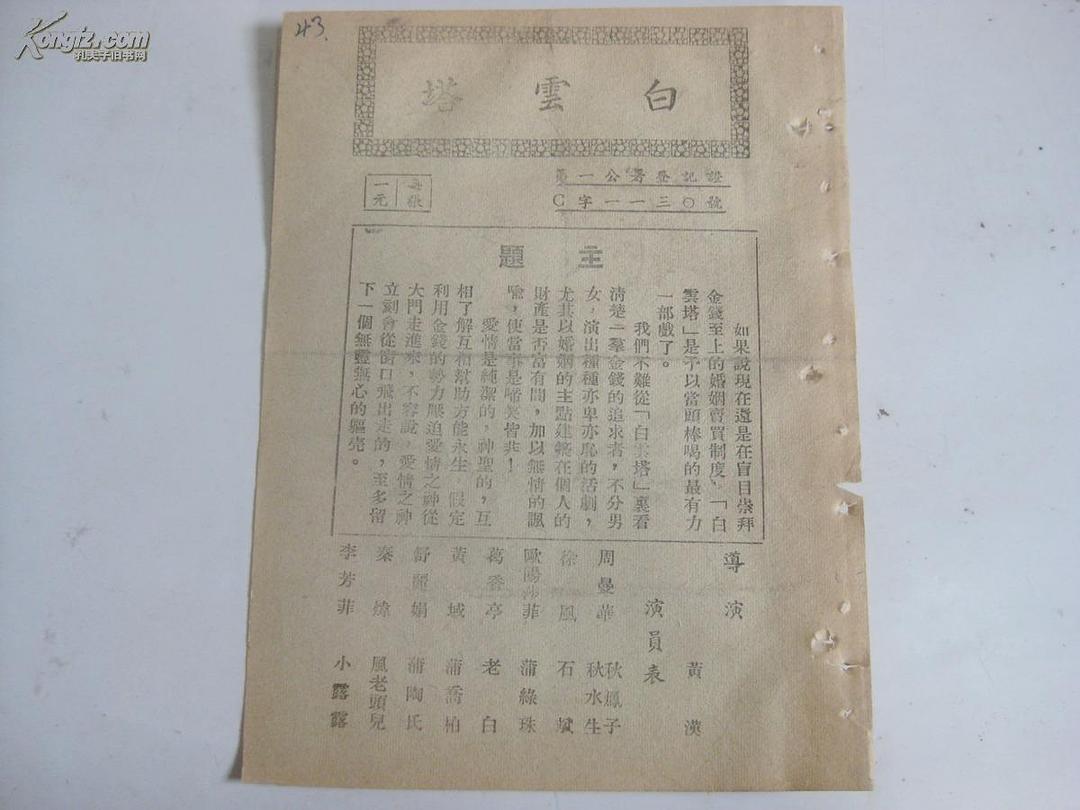 Kongfz.com
孔夫子旧书网
43.
白雲塔
第一公署登記證
C字一一三〇號
每張
一元
主題
如果說現在還是在盲目崇拜
金錢至上的婚姻賣買制度，「白
雲塔」是予以當頭棒喝的最有力
一部戲了。
我們不難從「白雲塔」裏看
清楚一羣金錢的追求者，不分男
女，演出種種亦卑亦恥的活劇，
尤其以婚姻的主點建築在個人的
財產是否富有間，加以無情的諷
喩，使當事是啼笑皆非！
愛情是純潔的，神聖的，互
相了解互相幫助方能永生，假定
利用金錢的勢力壓迫愛情之神從
大門走進來，不容說，愛情之神
立刻會從窗口飛出走的，至多留
下一個無靈無心的軀壳。
導演　黃漢
演員表
周曼華　秋鳳子 秋水生
徐風　石斌
歐陽莎菲　蒲綠珠
葛香亭　老白
黃域　蒲喬柏
舒麗娟　蒲陶氏
秦煒　風老頭兒
李芳菲　小露露